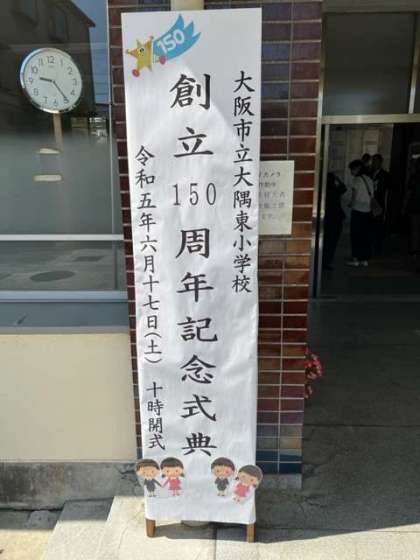 150
大阪市立大隅東小学校
創立150周年記念式典
令和五年六月十七日(土) 十時開式